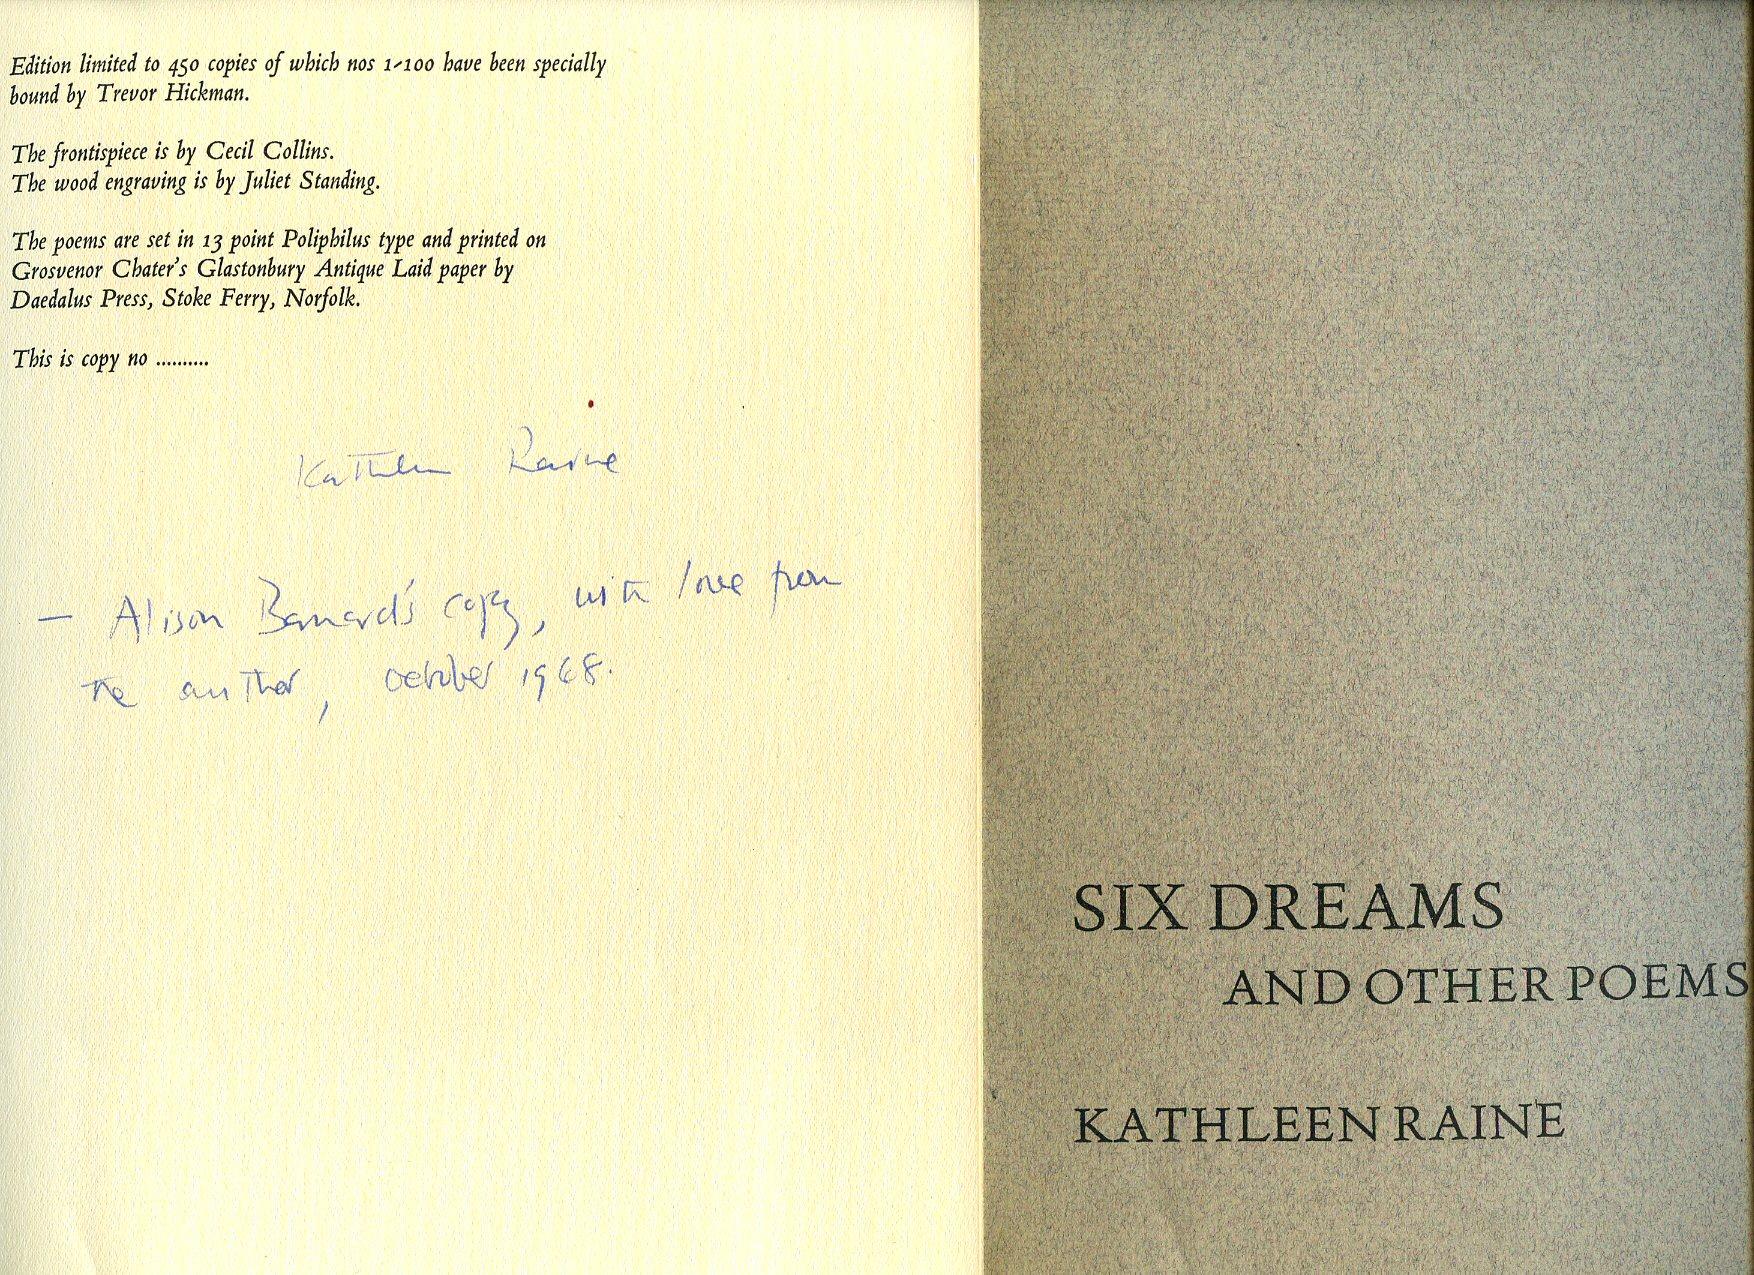 Edition limited to 450 copies of which nos 1-100 have been specially
bound by Trevor Hickman.
The frontispiece is by Cecil Collins.
The wood engraving is by Juliet Standing.
The poems are set in 13 point Poliphilus type and printed on
Grosvenor Chater's Glastonbury Antique Laid paper by
Daedalus Press, Stoke Ferry, Norfolk.
This is copy no ..........
Kathleen Raine
— Alison Barnard's copy, with love from
the author, October 1968.
SIX DREAMS
AND OTHER POEMS
KATHLEEN RAINE